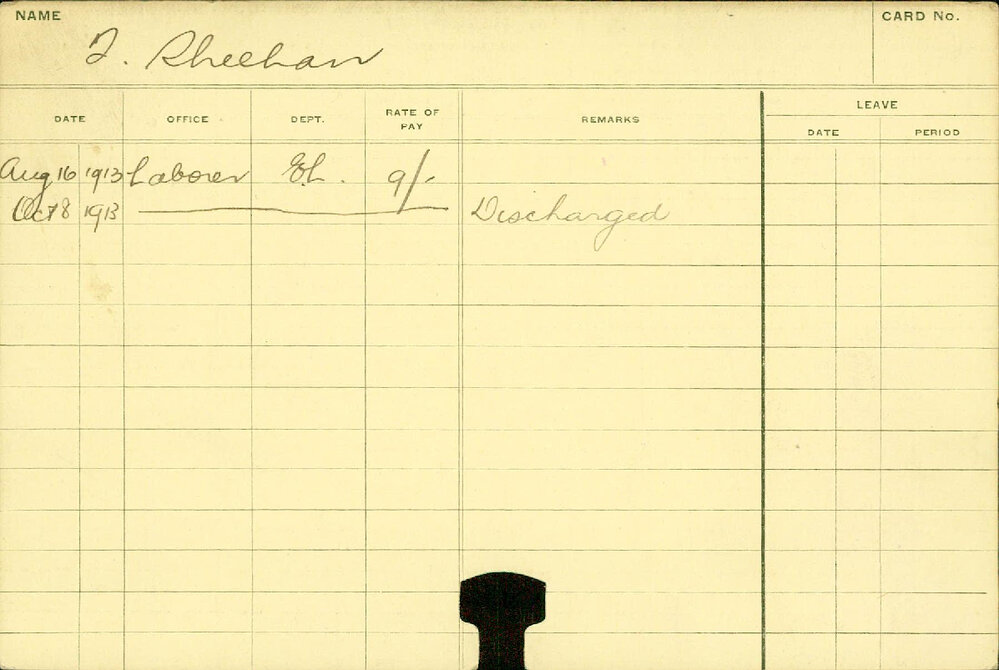 NAME CARD No.
F. Sheehan
DATE OFFICE DEPT. RATE OF PAY REMARKS LEAVE
DATE PERIOD
Aug 16 1913 Laborer El. 9/-
Oct 8 1913 Discharged